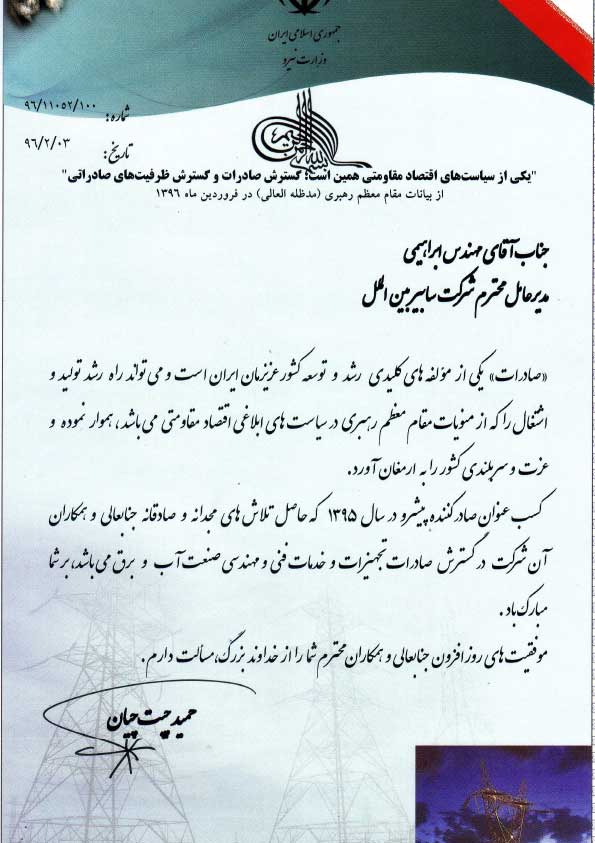 جمهوری اسلامی ایران
وزارت نیرو
شماره: ۹۶/۱۱۰۵۲/۱۰۰
تاریخ: ۹۶/۲/۰۳
بسم الله الرحمن الرحیم
"یکی از سیاست‌های اقتصاد مقاومتی همین است؛ گسترش صادرات و گسترش ظرفیت‌های صادراتی"
از بیانات مقام معظم رهبری (مدظله العالی) در فروردین ماه ۱۳۹۶
جناب آقای مهندس ابراهیمی
مدیرعامل محترم شرکت سابیر بین الملل
«صادرات» یکی از مؤلفه های کلیدی رشد و توسعه کشور عزیزمان ایران است و می‌تواند راه رشد تولید و
اشتغال را که از منویات مقام معظم رهبری در سیاست های ابلاغی اقتصاد مقاومتی می‌باشد، هموار نموده و
عزت و سربلندی کشور را به ارمغان آورد.
کسب عنوان صادر کننده پیشرو در سال ۱۳۹۵ که حاصل تلاش های مجدانه و صادقانه جنابعالی و همکاران
آن شرکت در گسترش صادرات تجهیزات و خدمات فنی و مهندسی صنعت آب و برق می‌باشد، بر شما
مبارک باد.
موفقیت های روز افزون جنابعالی و همکاران محترم شما را از خداوند بزرگ، مسألت دارم.
حمید چیت چیان